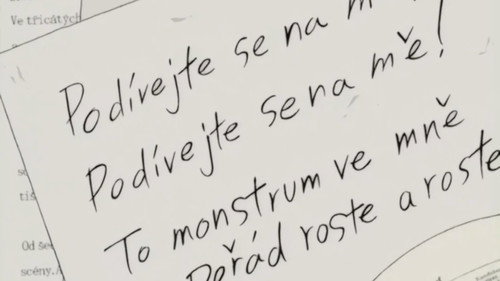 Ve třicátých
Podívejte se na
Podívejte se na mě!
To monstrum ve mně
Pořád roste a roste
Od
scény.